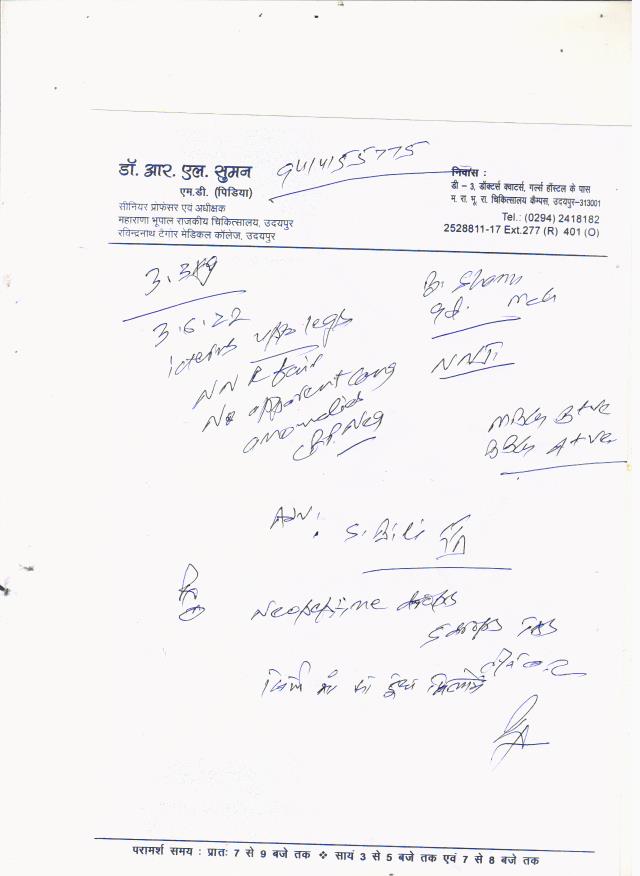 डॉ. आर. एल. सुमन
एम.डी. (पिडिया)
सीनियर प्रोफेसर एवं अधीक्षक
महाराणा भूपाल राजकीय चिकित्सालय, उदयपुर
रविन्द्रनाथ टैगोर मेडिकल कॉलेज, उदयपुर
9414155775
निवास :
डी – 3, डॉक्टर्स क्वाटर्स, गर्ल्स हॉस्टल के पास
म. रा. भू. रा. चिकित्सालय कैम्पस, उदयपुर-313001
Tel.: (0294) 2418182
2528811-17 Ext.277 (R) 401 (O)
3.3kg
3.6.22
icterus upto legs
NNR fair
No apparent cong
anomalies
Neg
B.
NNJ
MBG B+ve
BBG A+ve
Adv:
S. Bili
Neopeptine drops
5 drops TDS
सिर्फ माँ का दूध पिलायें
परामर्श समय : प्रातः 7 से 9 बजे तक ❖ सायं 3 से 5 बजे तक एवं 7 से 8 बजे तक